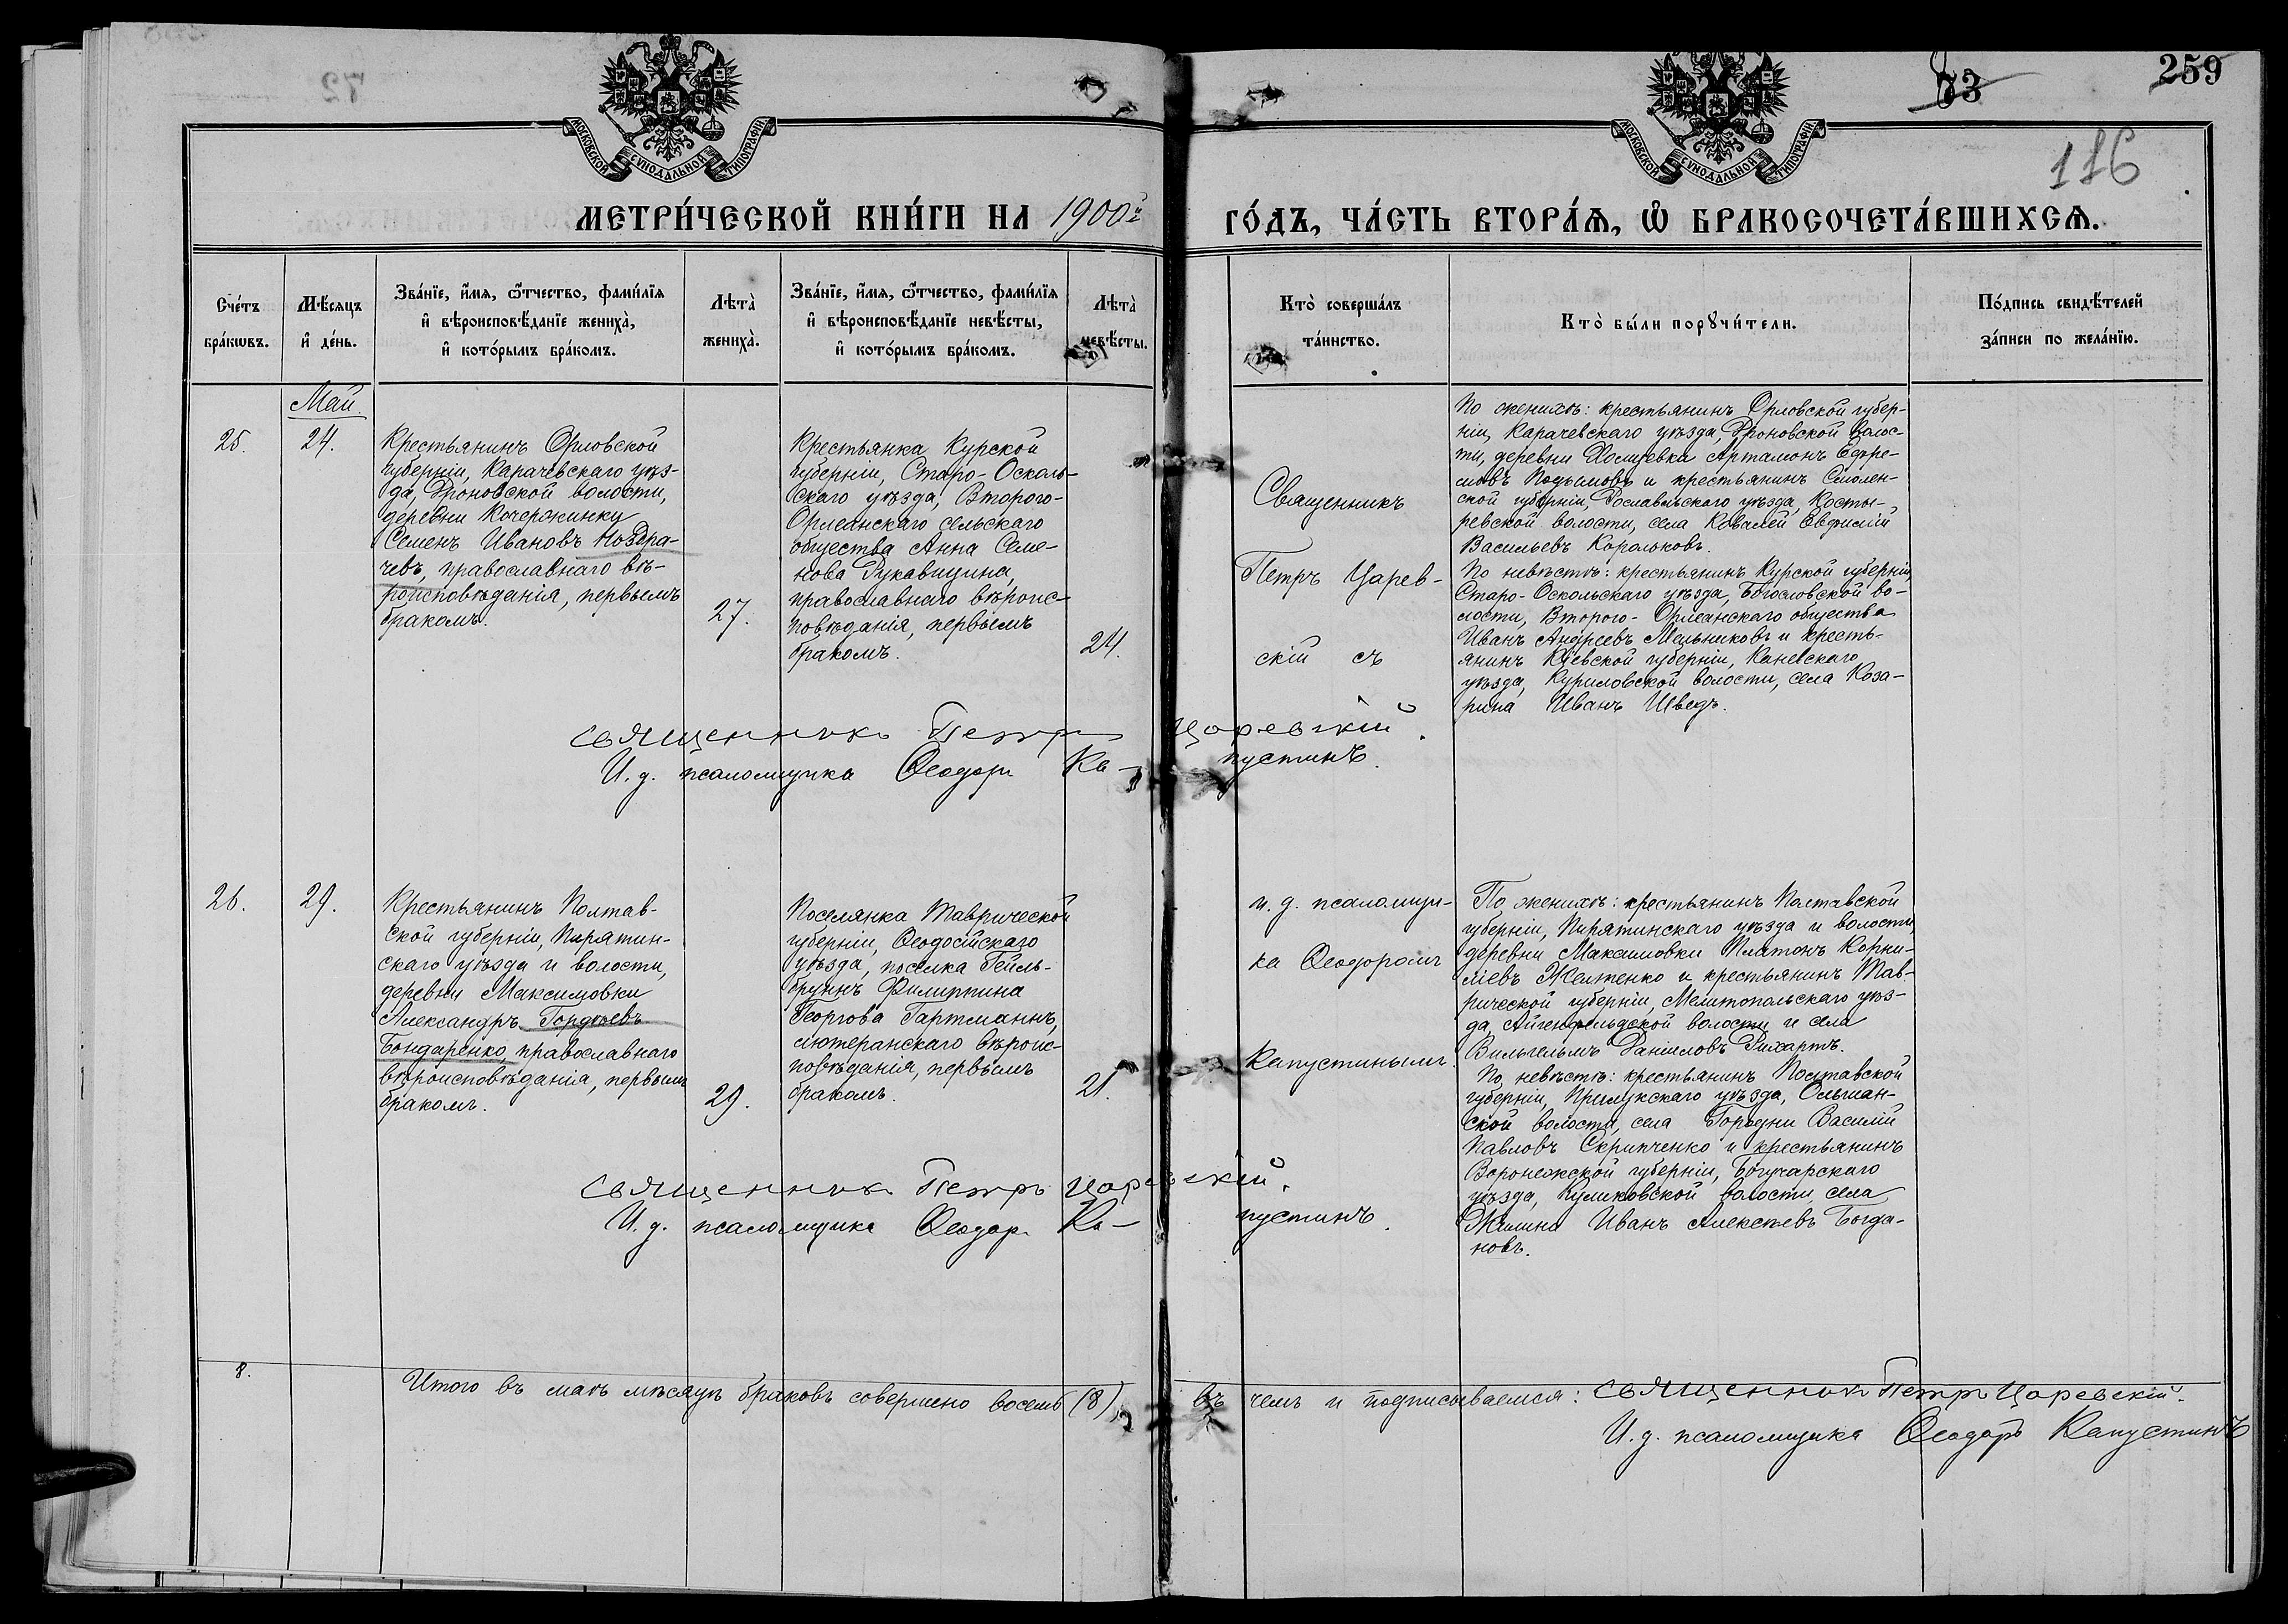 259
53
116
МОСКОВСКОЙ СѴНОДАЛЬНОЙ ТИПОГРАФІИ
МОСКОВСКОЙ СѴНОДАЛЬНОЙ ТИПОГРАФІИ
МЕТРИ́ЧЕСКОЙ КНИ́ГИ НА 1900й
ГО́ДЪ, ЧА́СТЬ ВТОРА́Ѧ, Ѽ БРАКОСОЧЕТА́ВШИХСѦ.
Сче́тъ
бра́кѡвъ.
Мѣ́сяцъ
и҆ де́нь.
Зва́нїе, и҆́мя, ѻ҆́тчество, фами́лїя
и҆ вѣроисповѣ́данїе жениха̀,
и҆ кото́рымъ бра́комъ.
Лѣта̀
жениха̀.
Зва́нїе, и҆́мя, ѻ҆́тчество, фами́лїя
и҆ вѣроисповѣ́данїе невѣ́сты,
и҆ кото́рымъ бра́комъ.
Лѣта̀
невѣ́сты.
Кто̀ соверша́лъ
та́инство.
Кто̀ бы́ли порꙋчи́тели.
По́дпись свидѣ́телей
за́писи по жела́нїю.
Май.
25.
24.
Крестьянинъ Орловской
губерніи, Карачевскаго уѣз-
да, Дроновской волости,
деревни Кочержинки
Семенъ Ивановъ Ноздра-
чевъ, православнаго вѣ-
роисповѣданія, первымъ
бракомъ.
27.
Крестьянка Курской
губерніи, Старо-Осколь-
скаго уѣзда, Второго-
Орлеанскаго сельскаго
общества Анна Семе-
нова Рукавицина,
православнаго вѣроис-
повѣданія, первымъ
бракомъ.
24.
Священникъ
Петръ Царев-
скій съ
По женихѣ: крестьянинъ Орловской губер-
ніи, Карачевскаго уѣзда, Дроновской волос-
ти, деревни Холщевки Артамонъ Ефре-
мовъ Подымовъ и крестьянинъ Смолен-
ской губерніи, Рославльскаго уѣзда, Косты-
ревской волости, села Ковалей Евфимій
Васильевъ Корольковъ.
По невѣстѣ: крестьянинъ Курской губерніи,
Старо-Оскольскаго уѣзда, Богословской во-
лости, Второго-Орлеанскаго общества
Иванъ Андреевъ Мельниковъ и кресть-
янинъ Кіевской губерніи, Каневскаго
уѣзда, Куриловской волости, села Коза-
рина Иванъ Шведъ.
священникъ Петръ Царевскій.
И. д. псаломщика Ѳеодоръ Ка-
пустинъ.
26.
29.
Крестьянинъ Полтав-
ской губерніи, Пирятин-
скаго уѣзда и волости,
деревни Максимовки
Александръ Гордѣевъ
Бондаренко, православнаго
вѣроисповѣданія, первымъ
бракомъ.
29.
Поселянка Таврической
губерніи, Ѳеодосійскаго
уѣзда, поселка Гейль-
бруннъ Филиппина
Георгова Гартманнъ,
лютеранскаго вѣроис-
повѣданія, первымъ
бракомъ.
21.
и. д. псаломщи-
ка Ѳеодоромъ
Капустинымъ.
По женихѣ: крестьянинъ Полтавской
губерніи, Пирятинскаго уѣзда и волости,
деревни Максимовки Платонъ Корни-
ліевъ Желтенко и крестьянинъ Тав-
рической губерніи, Мелитопольскаго уѣз-
да, Айгенфельдской волости и села
Вильгельмъ Даниловъ Рихартъ.
По невѣстѣ: крестьянинъ Полтавской
губерніи, Прилукскаго уѣзда, Ольшан-
ской волости, села Городни Василій
Павловъ Скрипченко и крестьянинъ
Воронежской губерніи, Богучарскаго
уѣзда, Куликовской волости, села
Жилина Иванъ Алексѣевъ Богда-
новъ.
священникъ Петръ Царевскій.
И. д. псаломщика Ѳеодоръ Ка-
пустинъ.
8.
Итого въ маѣ мѣсяцѣ браковъ совершено восемь (8), въ чемъ и подписываемся: священникъ Петръ Царевскій.
И. д. псаломщика Ѳеодоръ Капустинъ